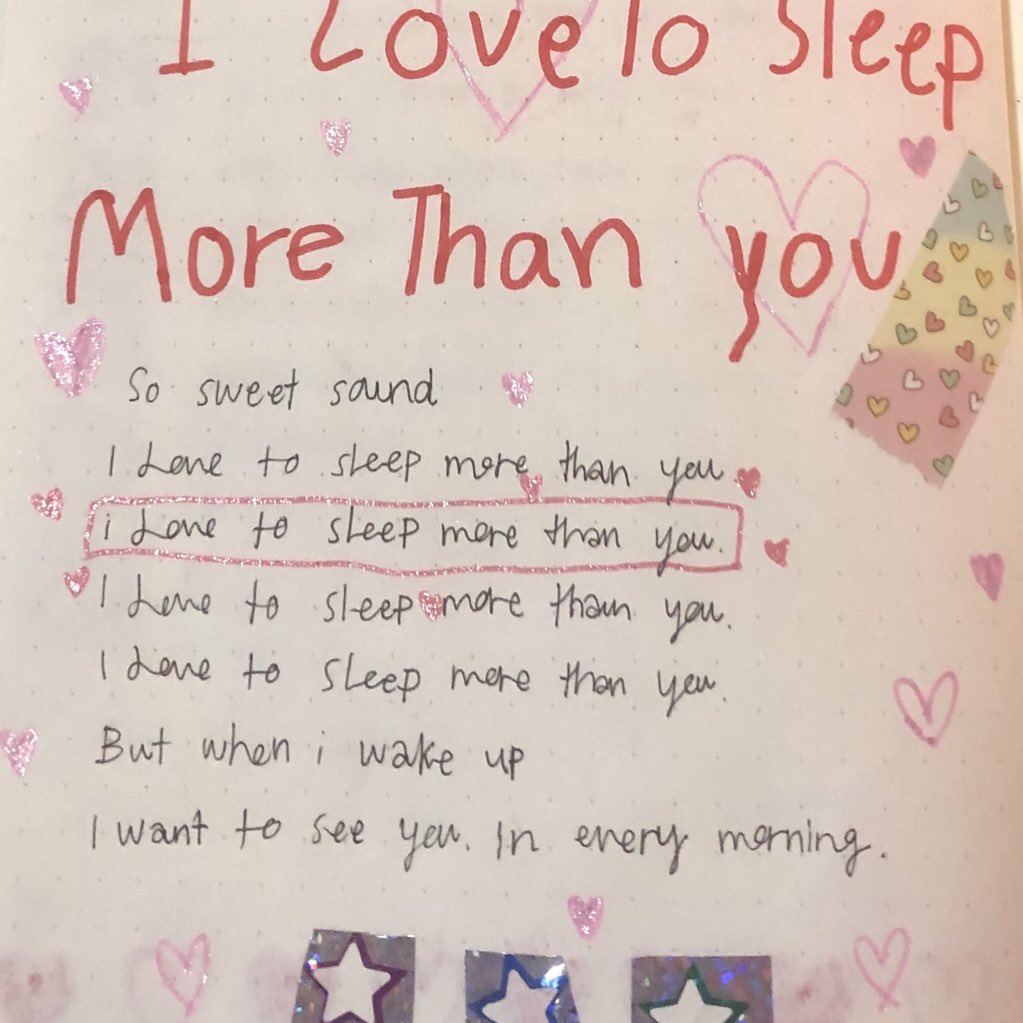 I Love To Sleep
More Than you
So sweet sound
I Love to sleep more than you
i Love to sleep more than you.
I Love to sleep more than you.
I Love to sleep more than you.
But when i wake up
I want to see you. In every morning.